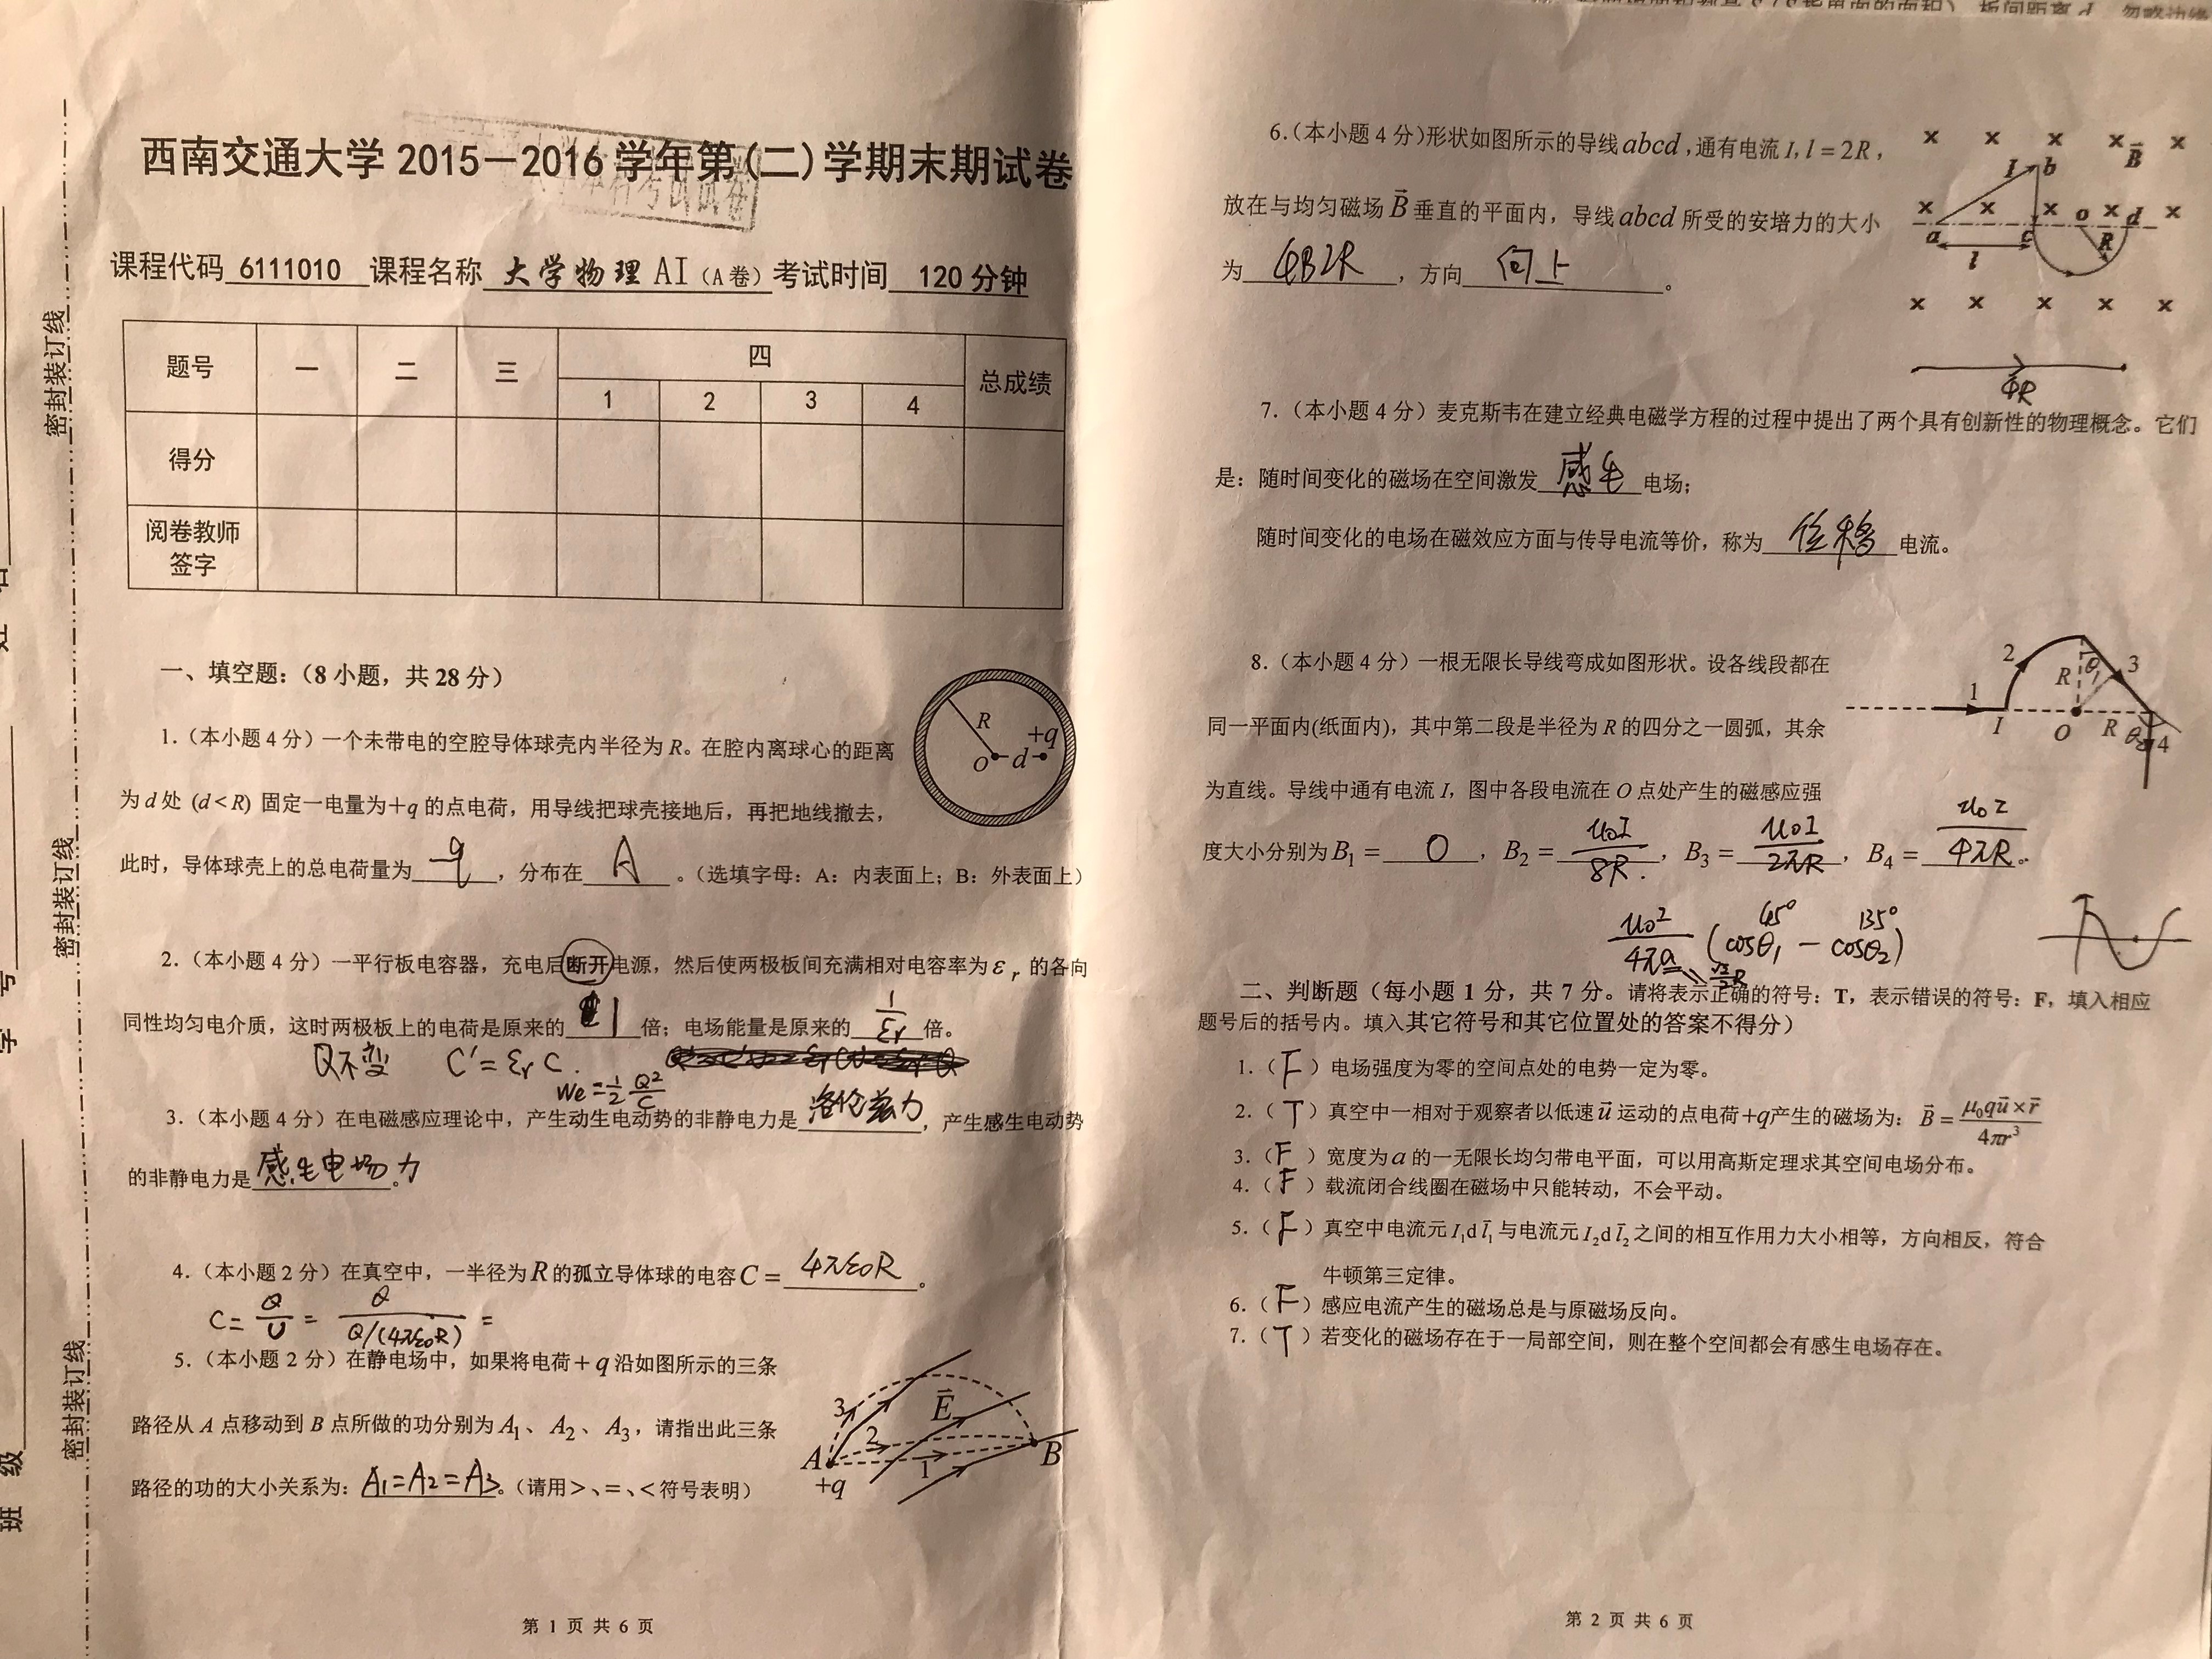 西南交通大学 2015－2016 学年第(二)学期末期试卷
课程代码 6111010 课程名称 大学物理 AI (A 卷) 考试时间 120 分钟
题号 一 二 三 四 总成绩
1 2 3 4
得分
阅卷教师
签字
密封装订线
密封装订线
密封装订线
学 号
班 级
一、填空题：（8 小题，共 28 分）
1.（本小题 4 分）一个未带电的空腔导体球壳内半径为 R。在腔内离球心的距离
为 d 处 (d < R) 固定一电量为+q 的点电荷，用导线把球壳接地后，再把地线撤去，
此时，导体球壳上的总电荷量为 q ，分布在 A 。（选填字母：A：内表面上；B：外表面上）
R
+q
O d
2.（本小题 4 分）一平行板电容器，充电后断开电源，然后使两极板间充满相对电容率为 εr 的各向
同性均匀电介质，这时两极板上的电荷是原来的 1 倍；电场能量是原来的 1/εr 倍。
Q不变 C' = εr C .
We = 1/2 Q²/C
3.（本小题 4 分）在电磁感应理论中，产生动生电动势的非静电力是 洛伦兹力 ，产生感生电动势
的非静电力是 感生电场力 。
4.（本小题 2 分）在真空中，一半径为 R 的孤立导体球的电容 C = 4πε0R 。
C = Q/U = Q/(Q/(4πε0R)) =
5.（本小题 2 分）在静电场中，如果将电荷＋q 沿如图所示的三条
路径从 A 点移动到 B 点所做的功分别为 A1、A2、A3，请指出此三条
路径的功的大小关系为： A1=A2=A3 。（请用＞、＝、＜符号表明）
3 E
2
A 1 B
+q
第 1 页 共 6 页
6.（本小题 4 分）形状如图所示的导线 abcd ,通有电流 I, l = 2R ,
放在与均匀磁场 B 垂直的平面内，导线 abcd 所受的安培力的大小
为 4BIR ，方向 向上 。
B
I b
a c o d
R
l
4R
7.（本小题 4 分）麦克斯韦在建立经典电磁学方程的过程中提出了两个具有创新性的物理概念。它们
是：随时间变化的磁场在空间激发 感生 电场；
随时间变化的电场在磁效应方面与传导电流等价，称为 位移 电流。
8.（本小题 4 分）一根无限长导线弯成如图形状。设各线段都在
同一平面内(纸面内)，其中第二段是半径为 R 的四分之一圆弧，其余
为直线。导线中通有电流 I，图中各段电流在 O 点处产生的磁感应强
度大小分别为 B1 = 0 ，B2 = μ0I/8R . ，B3 = μ0I/2πR ，B4 = μ0I/4πR 。
2 θ1 3
R
1
I O R θ2 4
45° 135°
μ0I/4πa (cosθ1 − cosθ2)
√2/2 R
二、判断题（每小题 1 分，共 7 分。请将表示正确的符号：T，表示错误的符号：F，填入相应
题号后的括号内。填入其它符号和其它位置处的答案不得分）
1.（ F ）电场强度为零的空间点处的电势一定为零。
2.（ T ）真空中一相对于观察者以低速 u 运动的点电荷+q产生的磁场为： B = μ0qu×r/4πr³
3.（ F ）宽度为 a 的一无限长均匀带电平面，可以用高斯定理求其空间电场分布。
4.（ F ）载流闭合线圈在磁场中只能转动，不会平动。
5.（ F ）真空中电流元 I1dl1 与电流元 I2dl2 之间的相互作用力大小相等，方向相反，符合
牛顿第三定律。
6.（ F ）感应电流产生的磁场总是与原磁场反向。
7.（ T ）若变化的磁场存在于一局部空间，则在整个空间都会有感生电场存在。
第 2 页 共 6 页